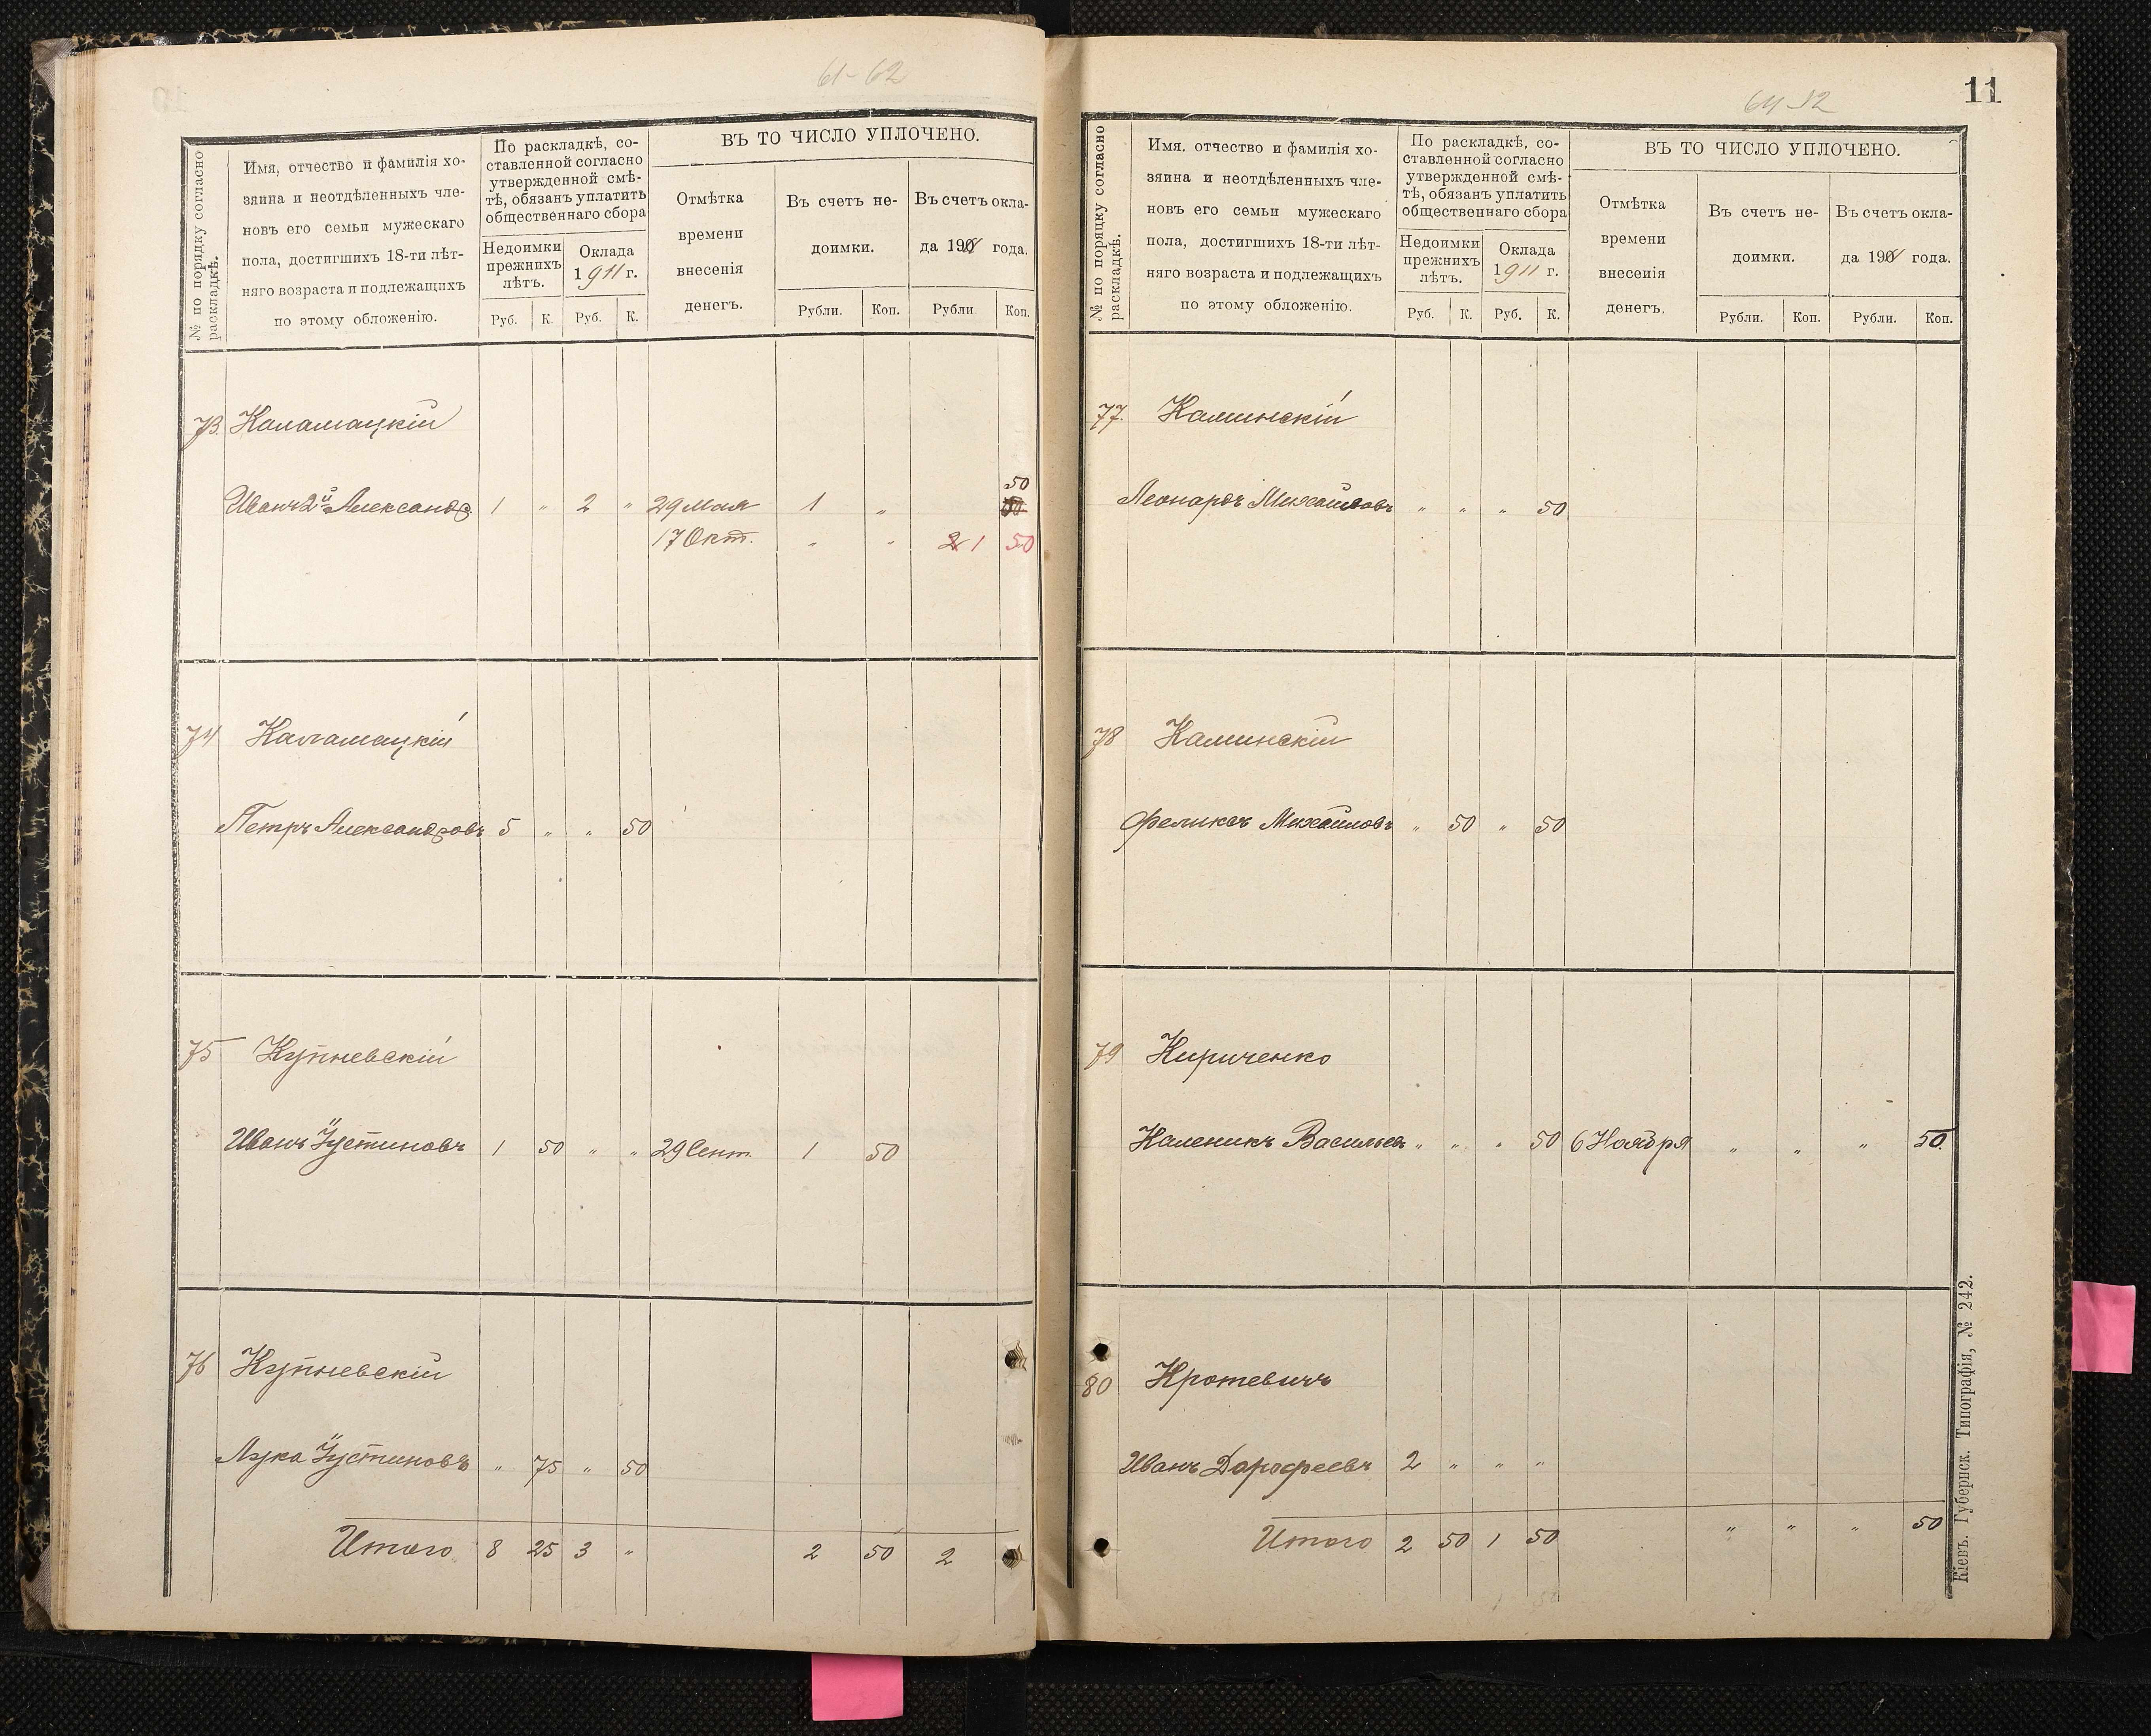 61-62
№ по порядку согласно раскладкѣ.
Имя, отчество и фамилія хо-
зяина и неотдѣленныхъ чле-
новъ его семьи мужескаго
пола, достигшихъ 18-ти лѣт-
няго возраста и подлежащихъ
по этому обложенію.
По раскладкѣ, со-
ставленной согласно
утвержденной смѣ-
тѣ, обязанъ уплатить
общественнаго сбора
Недоимки
прежнихъ
лѣтъ.
Оклада
1911 г.
Руб. К. Руб. К.
ВЪ ТО ЧИСЛО УПЛОЧЕНО.
Отмѣтка
времени
внесенія
денегъ.
Въ счетъ не-
доимки.
Въ счетъ окла-
да 190 года.
Рубли. Коп. Рубли Коп.
73. Каламацкій
50
Иванъ 2й Александр. 1 " 2 " 29 Мая 1 "
17 Окт. " " 1 50
74 Каламацкій
Петръ Александровъ 5 " " 50
75 Купневскій
Иванъ Іустиновъ 1 50 " " 29 Сент. 1 50
76 Купневскій
Лука Іустиновъ " 75 " 50
Итого 8 25 3 " 2 50 2
11
64-12
№ по порядку согласно раскладкѣ.
Имя. отчество и фамилія хо-
зяина и неотдѣленныхъ чле-
новъ его семьи мужескаго
пола, достигшихъ 18-ти лѣт-
няго возраста и подлежащихъ
по этому обложенію.
По раскладкѣ, со-
ставленной согласно
утвержденной смѣ-
тѣ, обязанъ уплатить
общественнаго сбора
Недоимки
прежнихъ
лѣтъ.
Оклада
1911 г.
Руб. К. Руб. К.
ВЪ ТО ЧИСЛО УПЛОЧЕНО.
Отмѣтка
времени
внесенія
денегъ.
Въ счетъ не-
доимки.
Въ счетъ окла-
да 190 года.
Рубли. Коп. Рубли. Коп.
77. Каминскій
Леонардъ Михайловъ " " " 50
78 Каминскій
Феликсъ Михайловъ " 50 " 50
79 Кириченко
Каленикъ Васильев " " " 50 6 Ноября " " " 50.
80 Кротевичъ
Иванъ Дорофеевъ 2 " " "
Итого 2 50 1 50 " " " 50
Кіевъ. Губернск. Типографія, № 242.